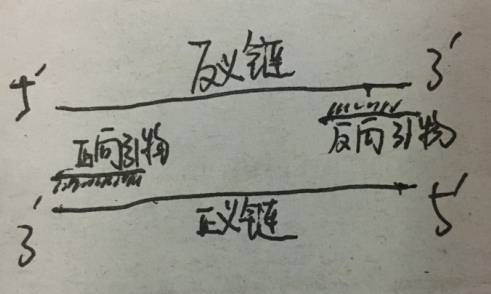 反义链
5' 3'
正向引物 反向引物
3' 正义链 5'